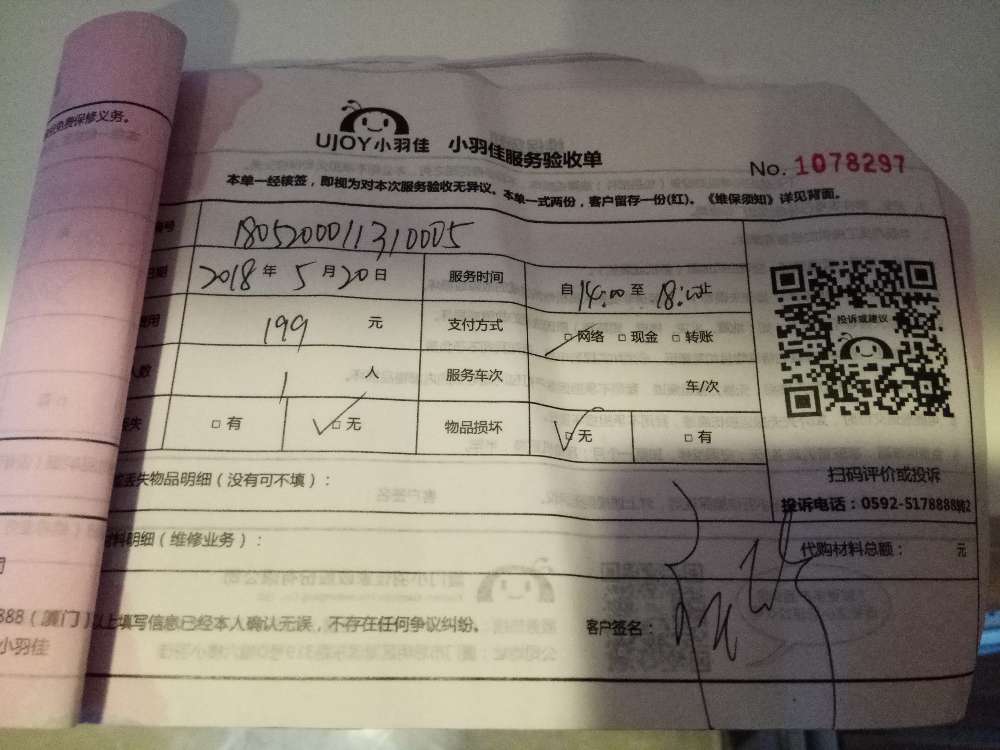 免费保修义务。
UJOY小羽佳 小羽佳服务验收单
No. 1078297
本单一经核签，即视为对本次服务验收无异议。本单一式两份，客户留存一份(红)。《维保须知》详见背面。
号 180520001131 0005
日期 2018 年 5 月 20 日 服务时间 自 14:00 至 18:00 止
用 199 元 支付方式 □ 网络 □ 现金 □ 转账
人数 1 人 服务车次 车/次
失 □ 有 □ 无 物品损坏 □ 无 □ 有
投诉或建议
扫码评价或投诉
投诉电话：0592-5178888转2
丢失物品明细（没有可不填）：
料明细（维修业务）： 代购材料总额： 元
888（厦门）
以上填写信息已经本人确认无误，不存在任何争议纠纷。 客户签名：
小羽佳